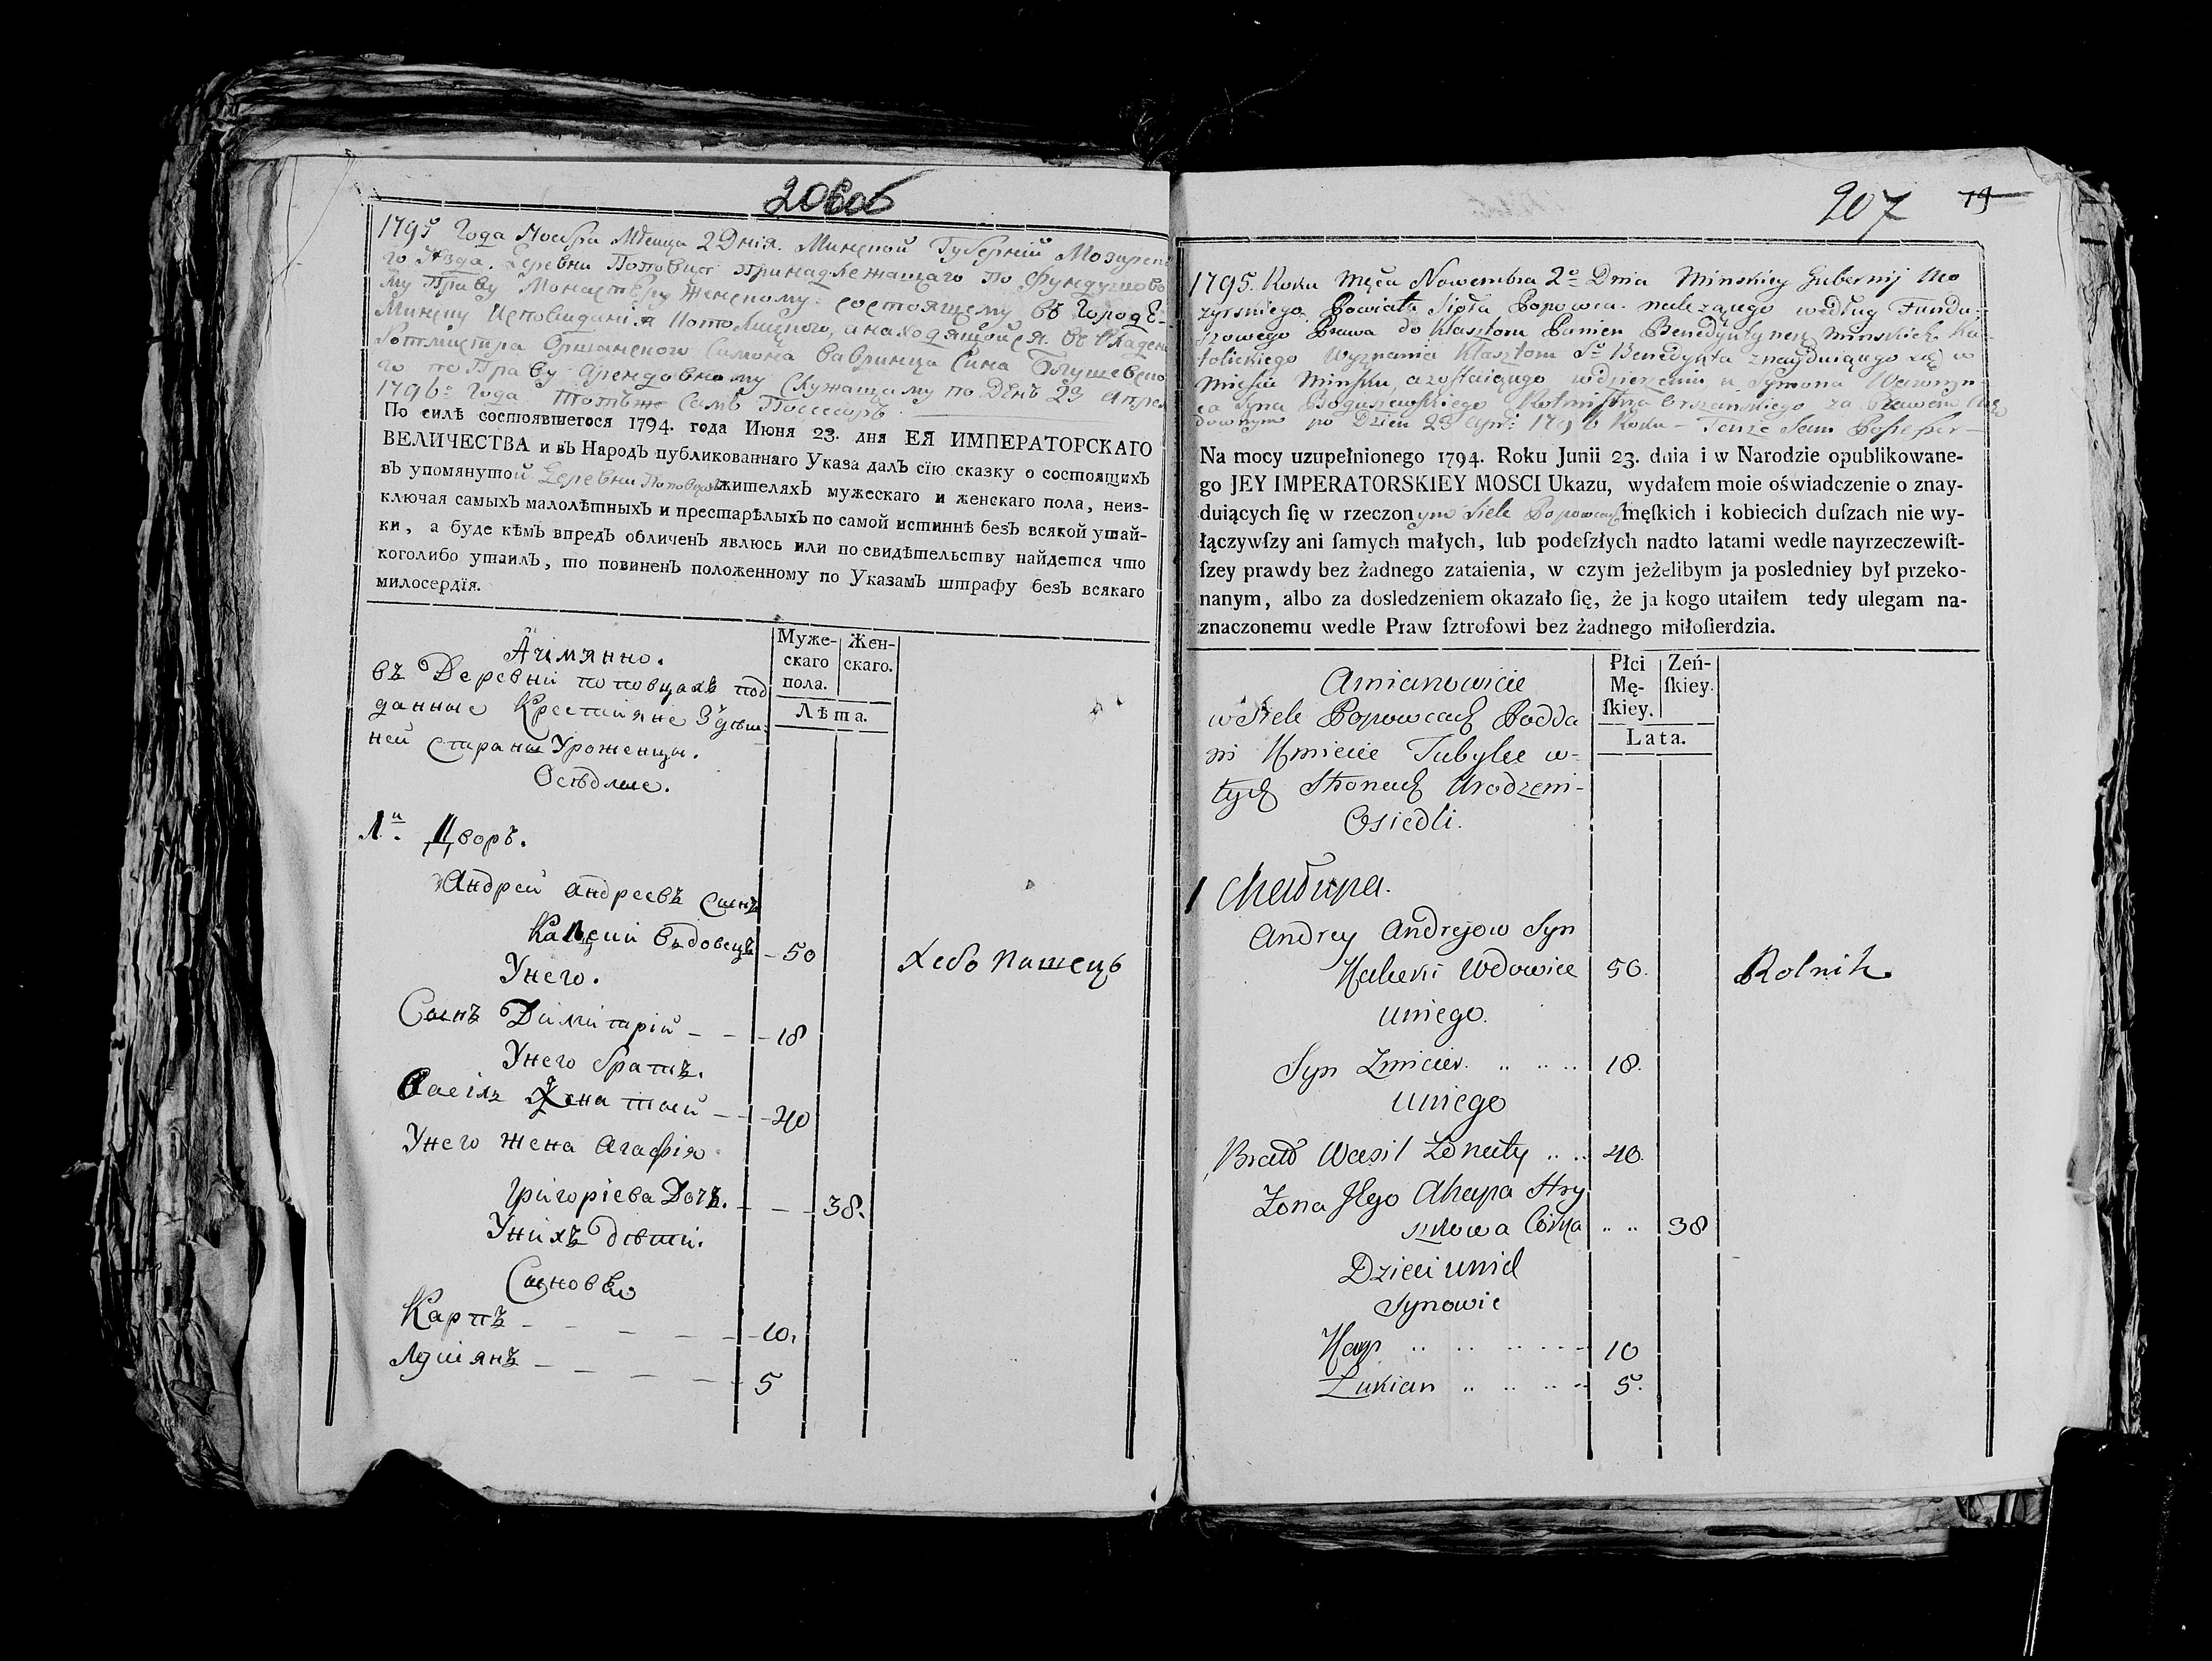 206об
1795 Года Ноября Мѣсяца 2 Дня. Минской Губерній Мозирска
го Уѣзда. Деревни Поповцы принадлежащаго по Фундушово
му Праву Монастыру Женскому состоящему въ Городѣ
Минску Исповиданія Католицкого, а находящойся въ владени
Ротмистра Оршанского Симона Вавринца Сина Богушевско
го по Праву Арендовному Служащому по День 23 Апрел
1796º Года Тотъже Самъ Поссесоръ
По силѣ состоявшегося 1794. года Июня 23. дня ЕЯ ИМПЕРАТОРСКАГО
ВЕЛИЧЕСТВА и въ Народъ публикованнаго Указа далъ сію сказку о состоящихъ
въ упомянутой Деревни Поповцахъ жителяхъ мужескаго и женскаго пола, неиз-
ключая самыхъ малолѣтныхъ и престарѣлыхъ по самой истиннѣ безъ всякой утай-
ки, а буде кѣмъ впредъ обличенъ явлюсь или по свидѣтельству найдется что
коголибо утаилъ, то повиненъ положенному по Указамъ штрафу безъ всякаго
милосердія.
Аимянно.
въ Деревни поповцахъ под
данные Крестияне Здѣш
ней стараны Уроженцы.
Осѣдлые.
Муже-
скаго
пола.
Жен-
скаго.
Лѣта.
1й. Дворъ.
Андрей андреевъ Сынъ
Вдовецъ - 50
Хлебопашецъ
Унего.
Сынъ Димитрій - - 18
Унего братъ.
Васіль Женатый - - 40
Унего жена Агафія
Григоріева Дочъ. - - 38.
Унихъ Дѣти.
Сыновя
Карпъ - - - - - 10.
Лукиянъ - - - - 5
207 79
1795. Roku Męca Nowembra 2º Dnia Minskiey Gubernij Mo
zyrskiego Powiatu Sioła Popowca należącego według Fundu-
szowego Prawa do Klasztoru Panien Benedyktynek Minskich Ka-
tolickiego Wyznania Klasztoru Sº Benedykta znayduiącego się w
Mieście Minsku, a zostaiącego w dzierżeniu u Symona Wawrzyn-
ca Syna Boguszewskiego Rotmistrza Orszanskiego za Prawem Arę
downym po Dzień 23 Apr: 1796 Roku - Tenże Sam Possessor -
Na mocy uzupełnionego 1794. Roku Junii 23. dnia i w Narodzie opublikowane-
go JEY IMPERATORSKIEY MOSCI Ukazu, wydałem moie oświadczenie o znay-
duiących ſię w rzeczonym Siele Popowcach męſkich i kobiecich duſzach nie wy-
łączywſzy ani ſamych małych, lub podeſzłych nadto latami wedle nayrzeczewiſt-
ſzey prawdy bez żadnego zataienia, w czym jeżelibym ja posledniey był przeko-
nanym, albo za dosledzeniem okazało ſię, że ja kogo utaiłem tedy ulegam na-
znaczonemu wedle Praw ſztrofowi bez żadnego miłoſierdzia.
Amianowicie
w Siele Popowcach Podda
ni Kmiecie Tubylce w-
tych Stronach Urodzeni-
Osiedli.
Płci
Mę-
ſkiey.
Zeń-
ſkiey.
Lata.
1 Chałupa.
Andrey Andrejow Syn
Wdowiec 50.
Rolnik.
U niego.
Syn Zmicier. .. .. .. 18.
U niego
Brat Wasil Żonaty .. .. 40.
Żona Jego Ahapa Hry
szkowa Córka .. .. 38
Dzieci u nich
Synowie
Karp .. .. .. .. 10
Łukian .. .. .. .. 5.